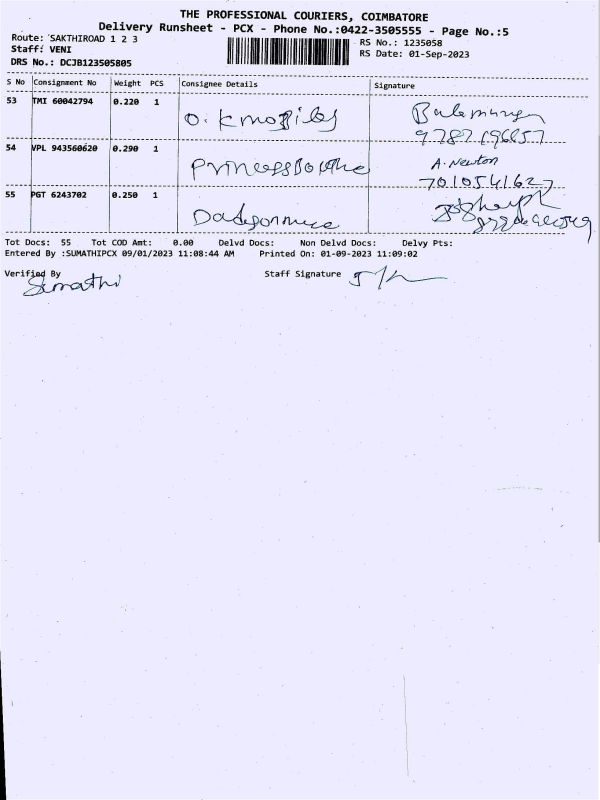 THE PROFESSIONAL COURIERS, COIMBATORE
Delivery Runsheet - PCX - Phone No.:0422-3505555 - Page No.:5
Route: SAKTHIROAD 1 2 3
RS No.: 1235058
Staff: VENI
RS Date: 01-Sep-2023
DRS No.: DCJB123505805
S No Consignment No Weight PCS Consignee Details Signature
53 TMI 60042794 0.220 1 O.K
54 VPL 943560620 0.290 1 A. Newton
7010541627
55 PGT 6243702 0.250 1
Tot Docs: 55 Tot COD Amt: 0.00 Delvd Docs: Non Delvd Docs: Delvy Pts:
Entered By :SUMATHIPCX 09/01/2023 11:08:44 AM Printed On: 01-09-2023 11:09:02
Verified By Staff Signature
Sumathi